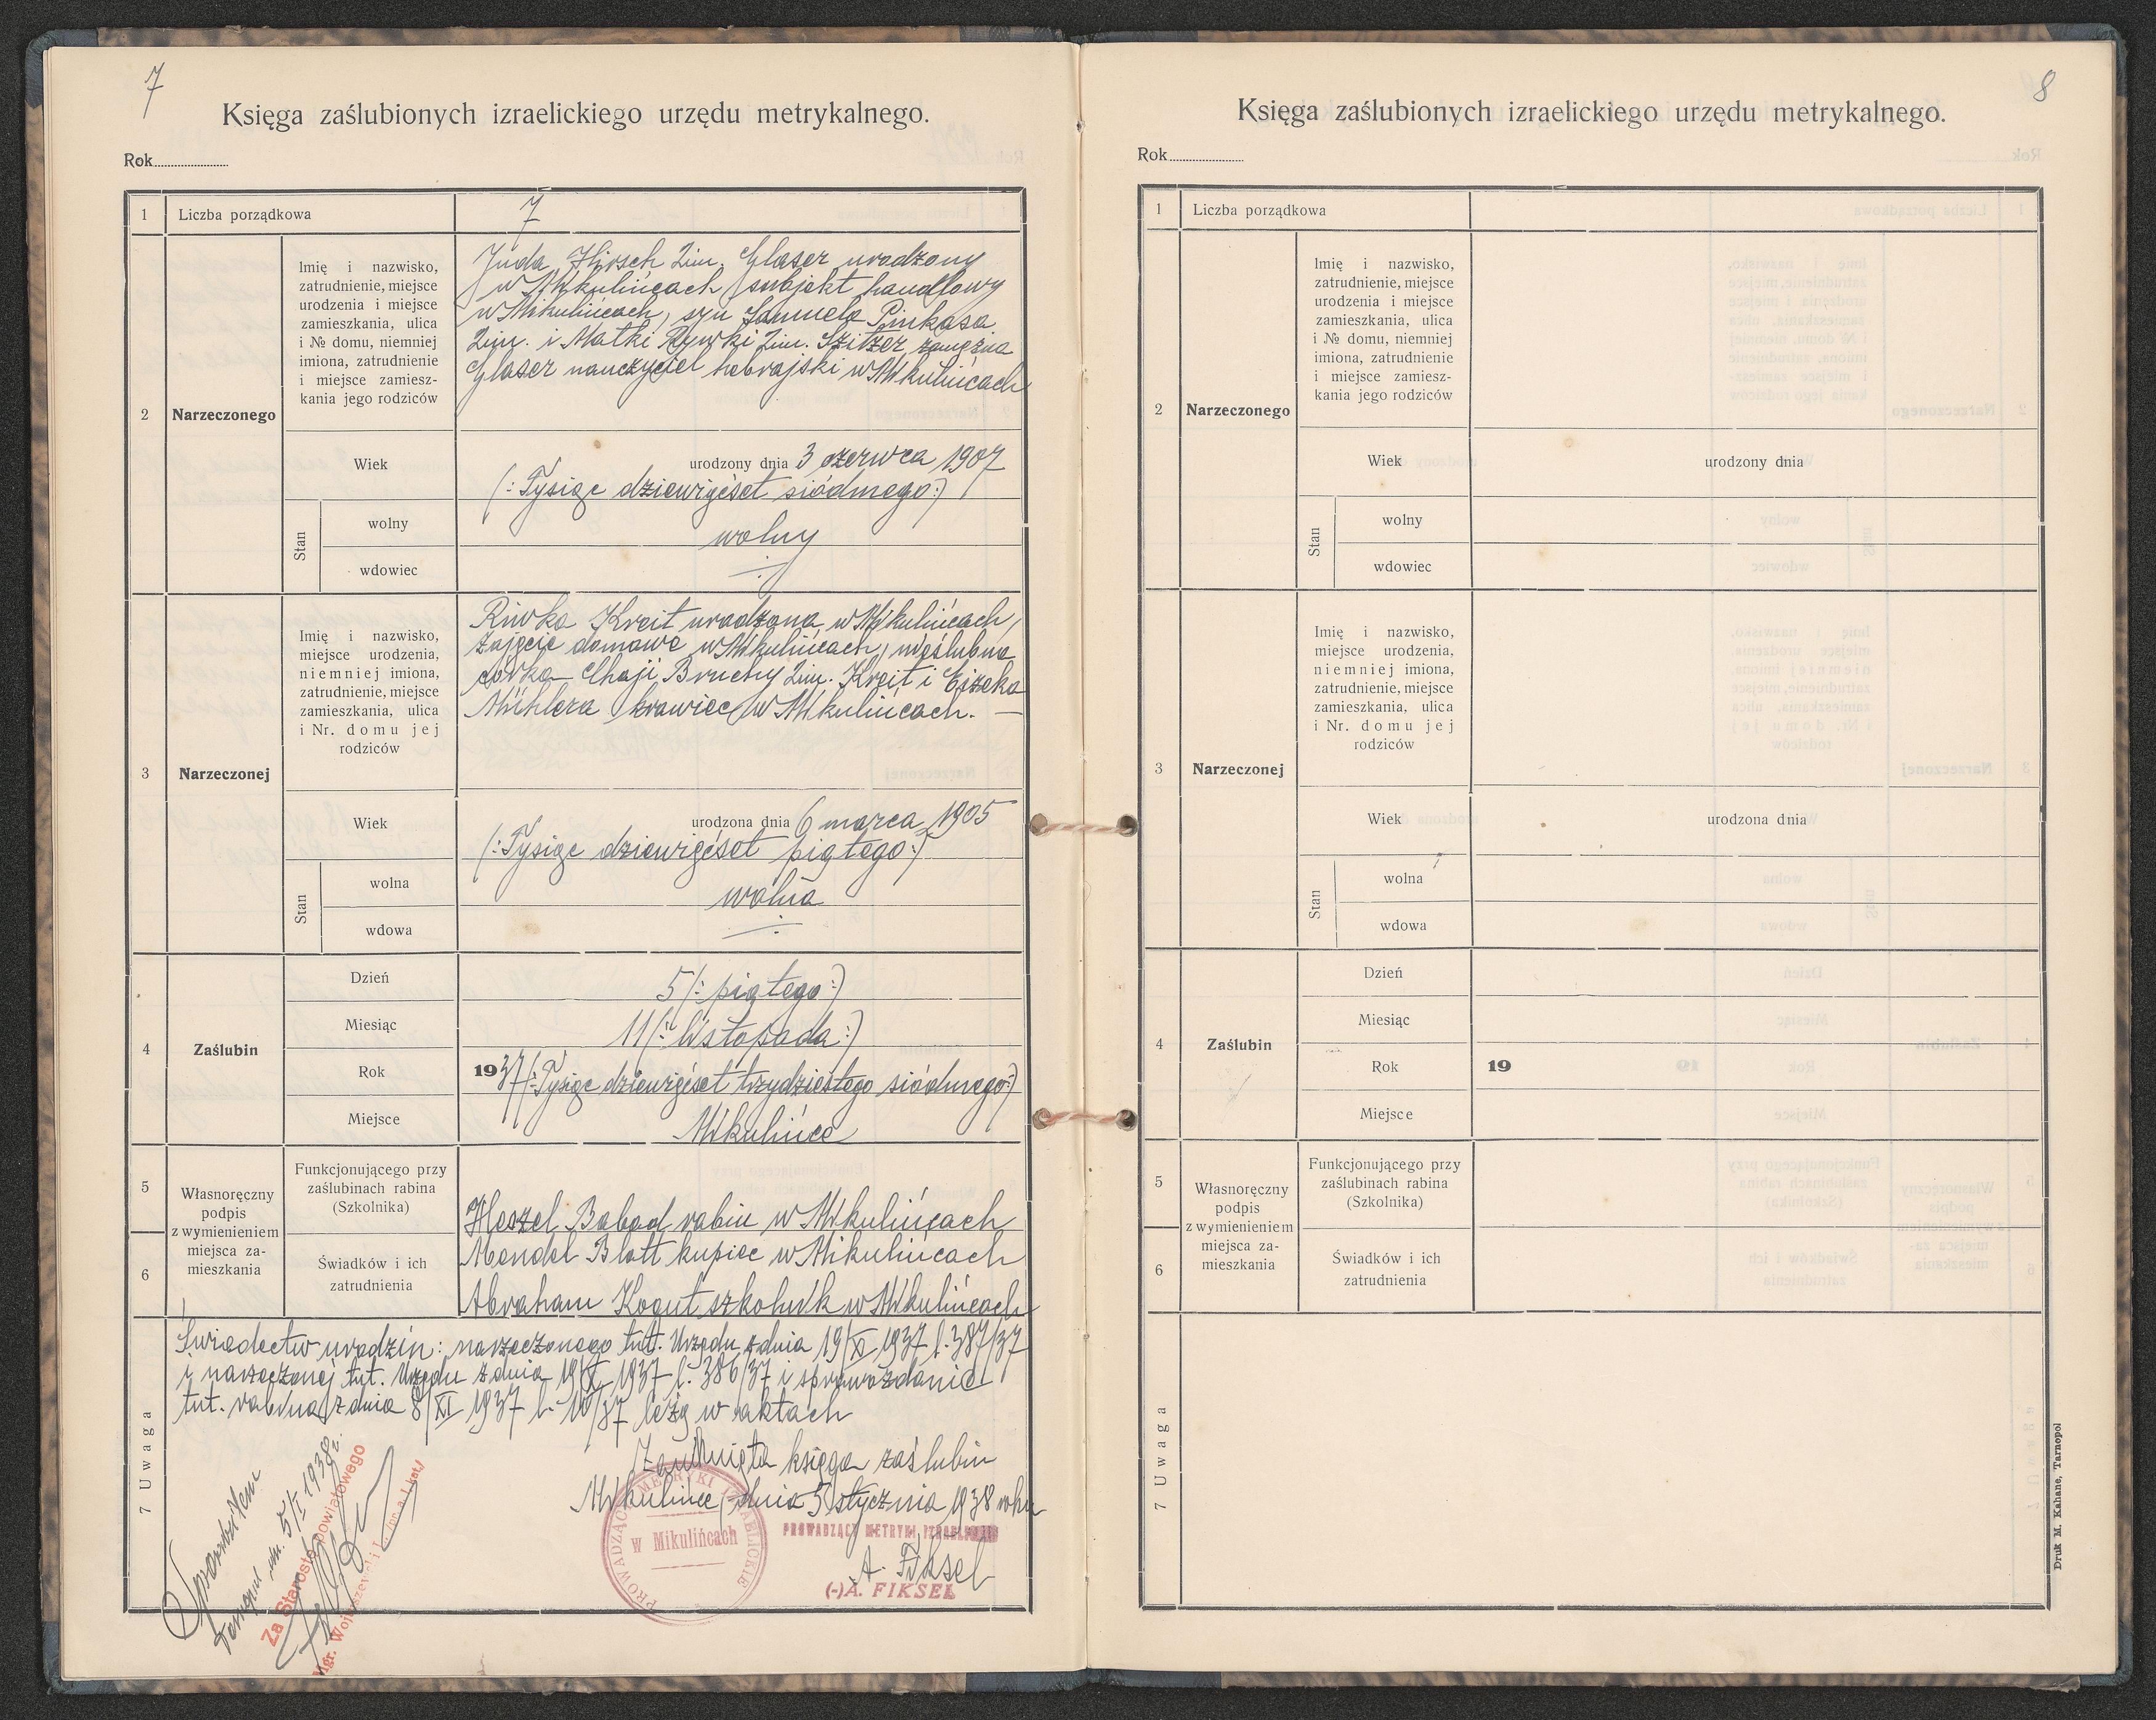 7
Księga zaślubionych izraelickiego urzędu metrykalnego.
Rok
1 Liczba porządkowa 7
2 Narzeczonego
Imię i nazwisko,
zatrudnienie, miejsce
urodzenia i miejsce
zamieszkania, ulica
i № domu, niemniej
imiona, zatrudnienie
i miejsce zamiesz-
kania jego rodziców
Juda Hirsch 2im. Glaser urodzony
w Mikulińcach, subjekt handlowy
w Mikulińcach, syn Samuela Pinkasa
2im. i Matki Rywki 2im. Szitzer zamężna
Glaser nauczyciel hebrajski w Mikulińcach
Wiek urodzony dnia 3 czerwca 1907
(: Tysiąc dziewięćset siódmego :)
Stan
wolny
wolny
wdowiec
3 Narzeczonej
Imię i nazwisko,
miejsce urodzenia,
niemniej imiona,
zatrudnienie, miejsce
zamieszkania, ulica
i Nr. domu jej
rodziców
Riwka Kreit urodzona w Mikulińcach,
zajęcie domowe w Mikulińcach, nieślubna
córka Chaji Bruchy 2im. Kreit i Eizeka
Mühlera krawiec w Mikulińcach. —
Wiek urodzona dnia 6 marca 1905
(: Tysiąc dziewięćset piątego :)
Stan
wolna
wolna
wdowa
4 Zaślubin
Dzień 5 (: piątego :)
Miesiąc 11 (: listopada :)
Rok 1937 (: Tysiąc dziewięćset trzydziestego siódmego :)
Miejsce Mikulińce
5
6
Własnoręczny
podpis
z wymienieniem
miejsca za-
mieszkania
Funkcjonującego przy
zaślubinach rabina
(Szkolnika)
Heszel Babad rabin w Mikulińcach
Świadków i ich
zatrudnienia
Mendel Blatt kupiec w Mikulińcach
Abraham Kogut szkolnik w Mikulińcach
7 Uwaga
Świadectw urodzin: narzeczonego tut. Urzędu z dnia 19/X 1937 l. 387/37
i narzeczonej tut. Urzędu z dnia 19/X 1937 l. 386/37 i sprawozdanie
tut. rabina z dnia 8/XI 1937 l. 10/37 leżą w aktach
Zamknięta księga zaślubin
Mikulińce, dnia 5 stycznia 1938 roku
PROWADZĄCY METRYKI IZRAELICKIE
w Mikulińcach
PROWADZĄCY METRYKI IZRAELICKIE
A. Fiksel
(-) A. FIKSEL
Sprawdziłem
Tarnopol dn. 5/I 1938 r.
Za Starostę powiatowego
8
Księga zaślubionych izraelickiego urzędu metrykalnego.
Rok
1 Liczba porządkowa
2 Narzeczonego
Imię i nazwisko,
zatrudnienie, miejsce
urodzenia i miejsce
zamieszkania, ulica
i № domu, niemniej
imiona, zatrudnienie
i miejsce zamiesz-
kania jego rodziców
Wiek urodzony dnia
Stan
wolny
wdowiec
3 Narzeczonej
Imię i nazwisko,
miejsce urodzenia,
niemniej imiona,
zatrudnienie, miejsce
zamieszkania, ulica
i Nr. domu jej
rodziców
Wiek urodzona dnia
Stan
wolna
wdowa
4 Zaślubin
Dzień
Miesiąc
Rok 19
Miejsce
5
6
Własnoręczny
podpis
z wymienieniem
miejsca za-
mieszkania
Funkcjonującego przy
zaślubinach rabina
(Szkolnika)
Świadków i ich
zatrudnienia
7 Uwaga
Druk M. Kahane, Tarnopol